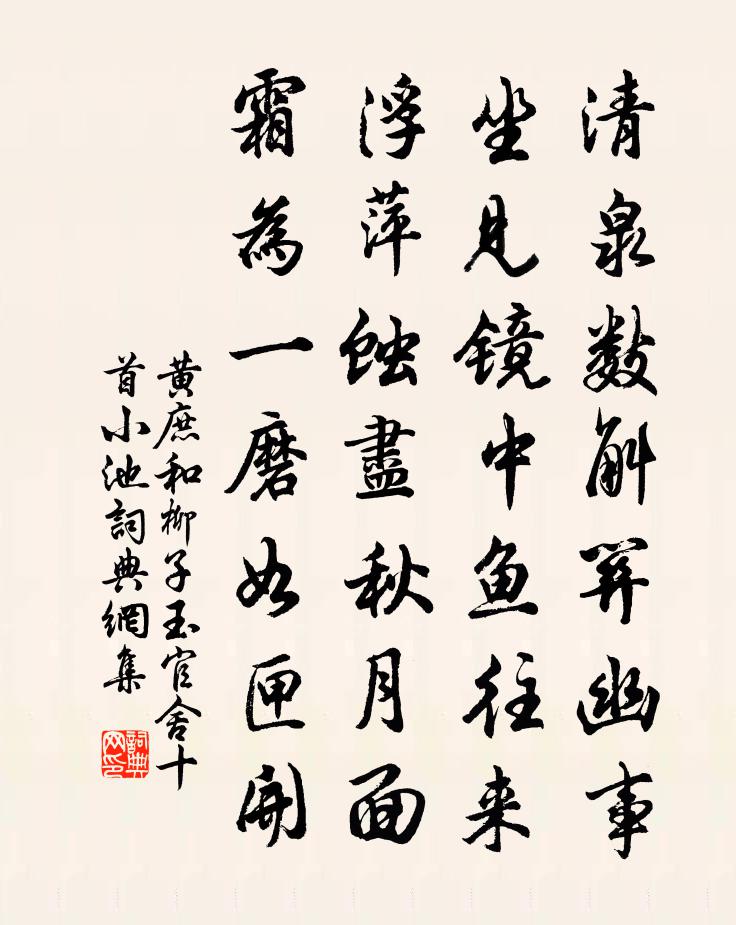 清泉數斛開幽事
坐見鏡中鱼往来
浮萍蝕盡秋月面
霜為一磨如匣開
黄庶和柳子玉官舍十
首小池詞典網集
詞典
网印